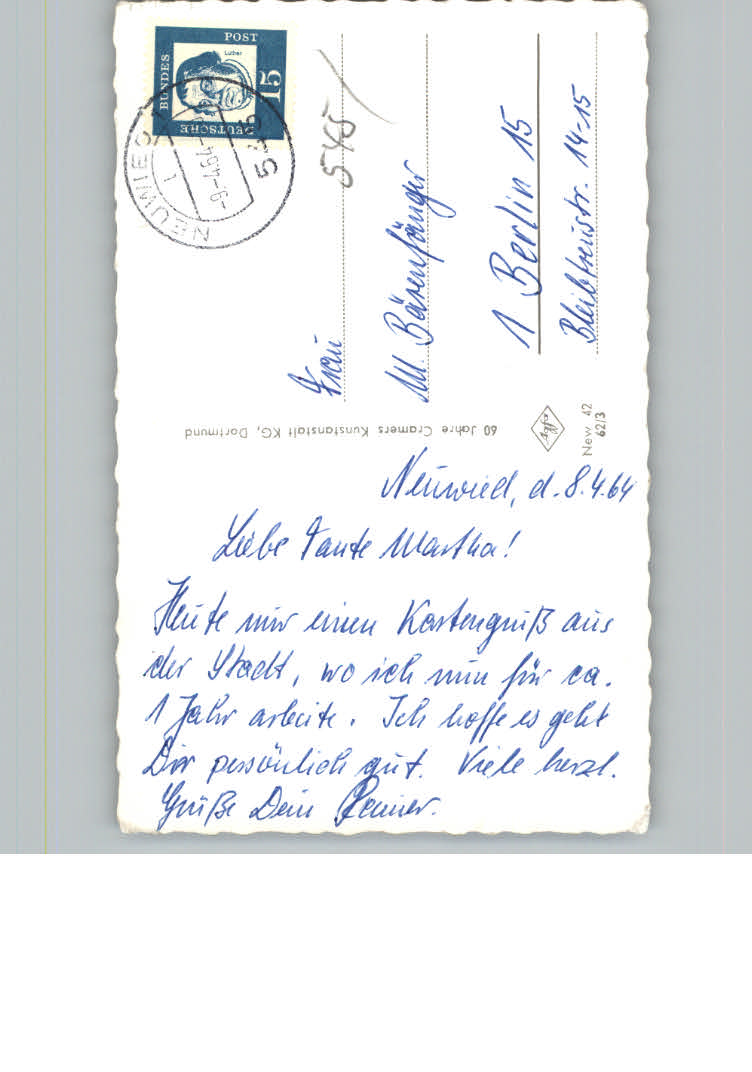 Neuwied, d. 8.4.64
Liebe Tante Martha!
Heute nur einen Kartengruß aus
der Stadt, wo ich nun für ca.
1 Jahr arbeite. Ich hoffe es geht
Dir persönlich gut. Viele herzl.
Grüße Dein Reiner.
Frau
M. Bärenfänger
1 Berlin 15
Bleibtreustr. 14-15
545
60 Jahre Cramers Kunstanstalt KG, Dortmund
New. 42
62/3
DEUTSCHE
BUNDES
POST
Luther
15
NEUWIED 1
-9.-4.64
545